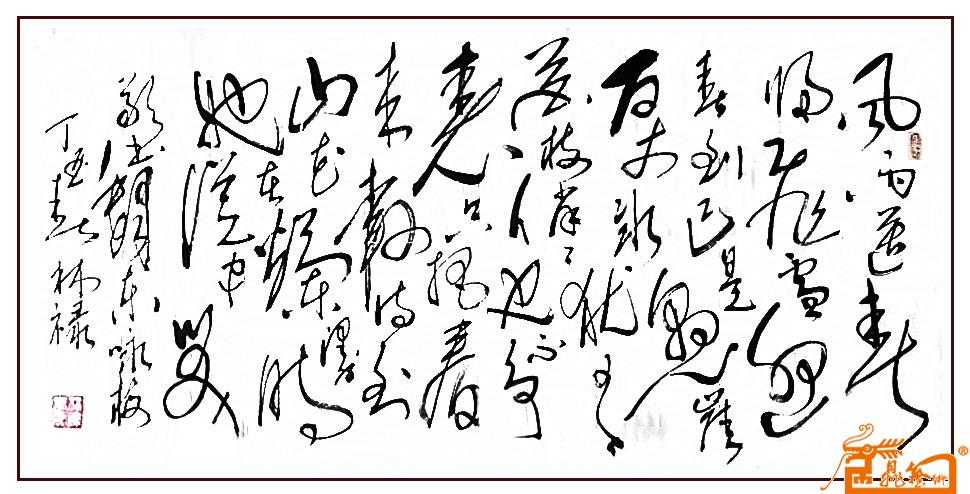 风雨送春
归飞雪迎
春到已是悬崖
百丈冰犹有
花枝俏〻也不争
春只把春
来报待到
山花烂漫时
她在丛中笑
敬书东咏梅
丁酉春林禄